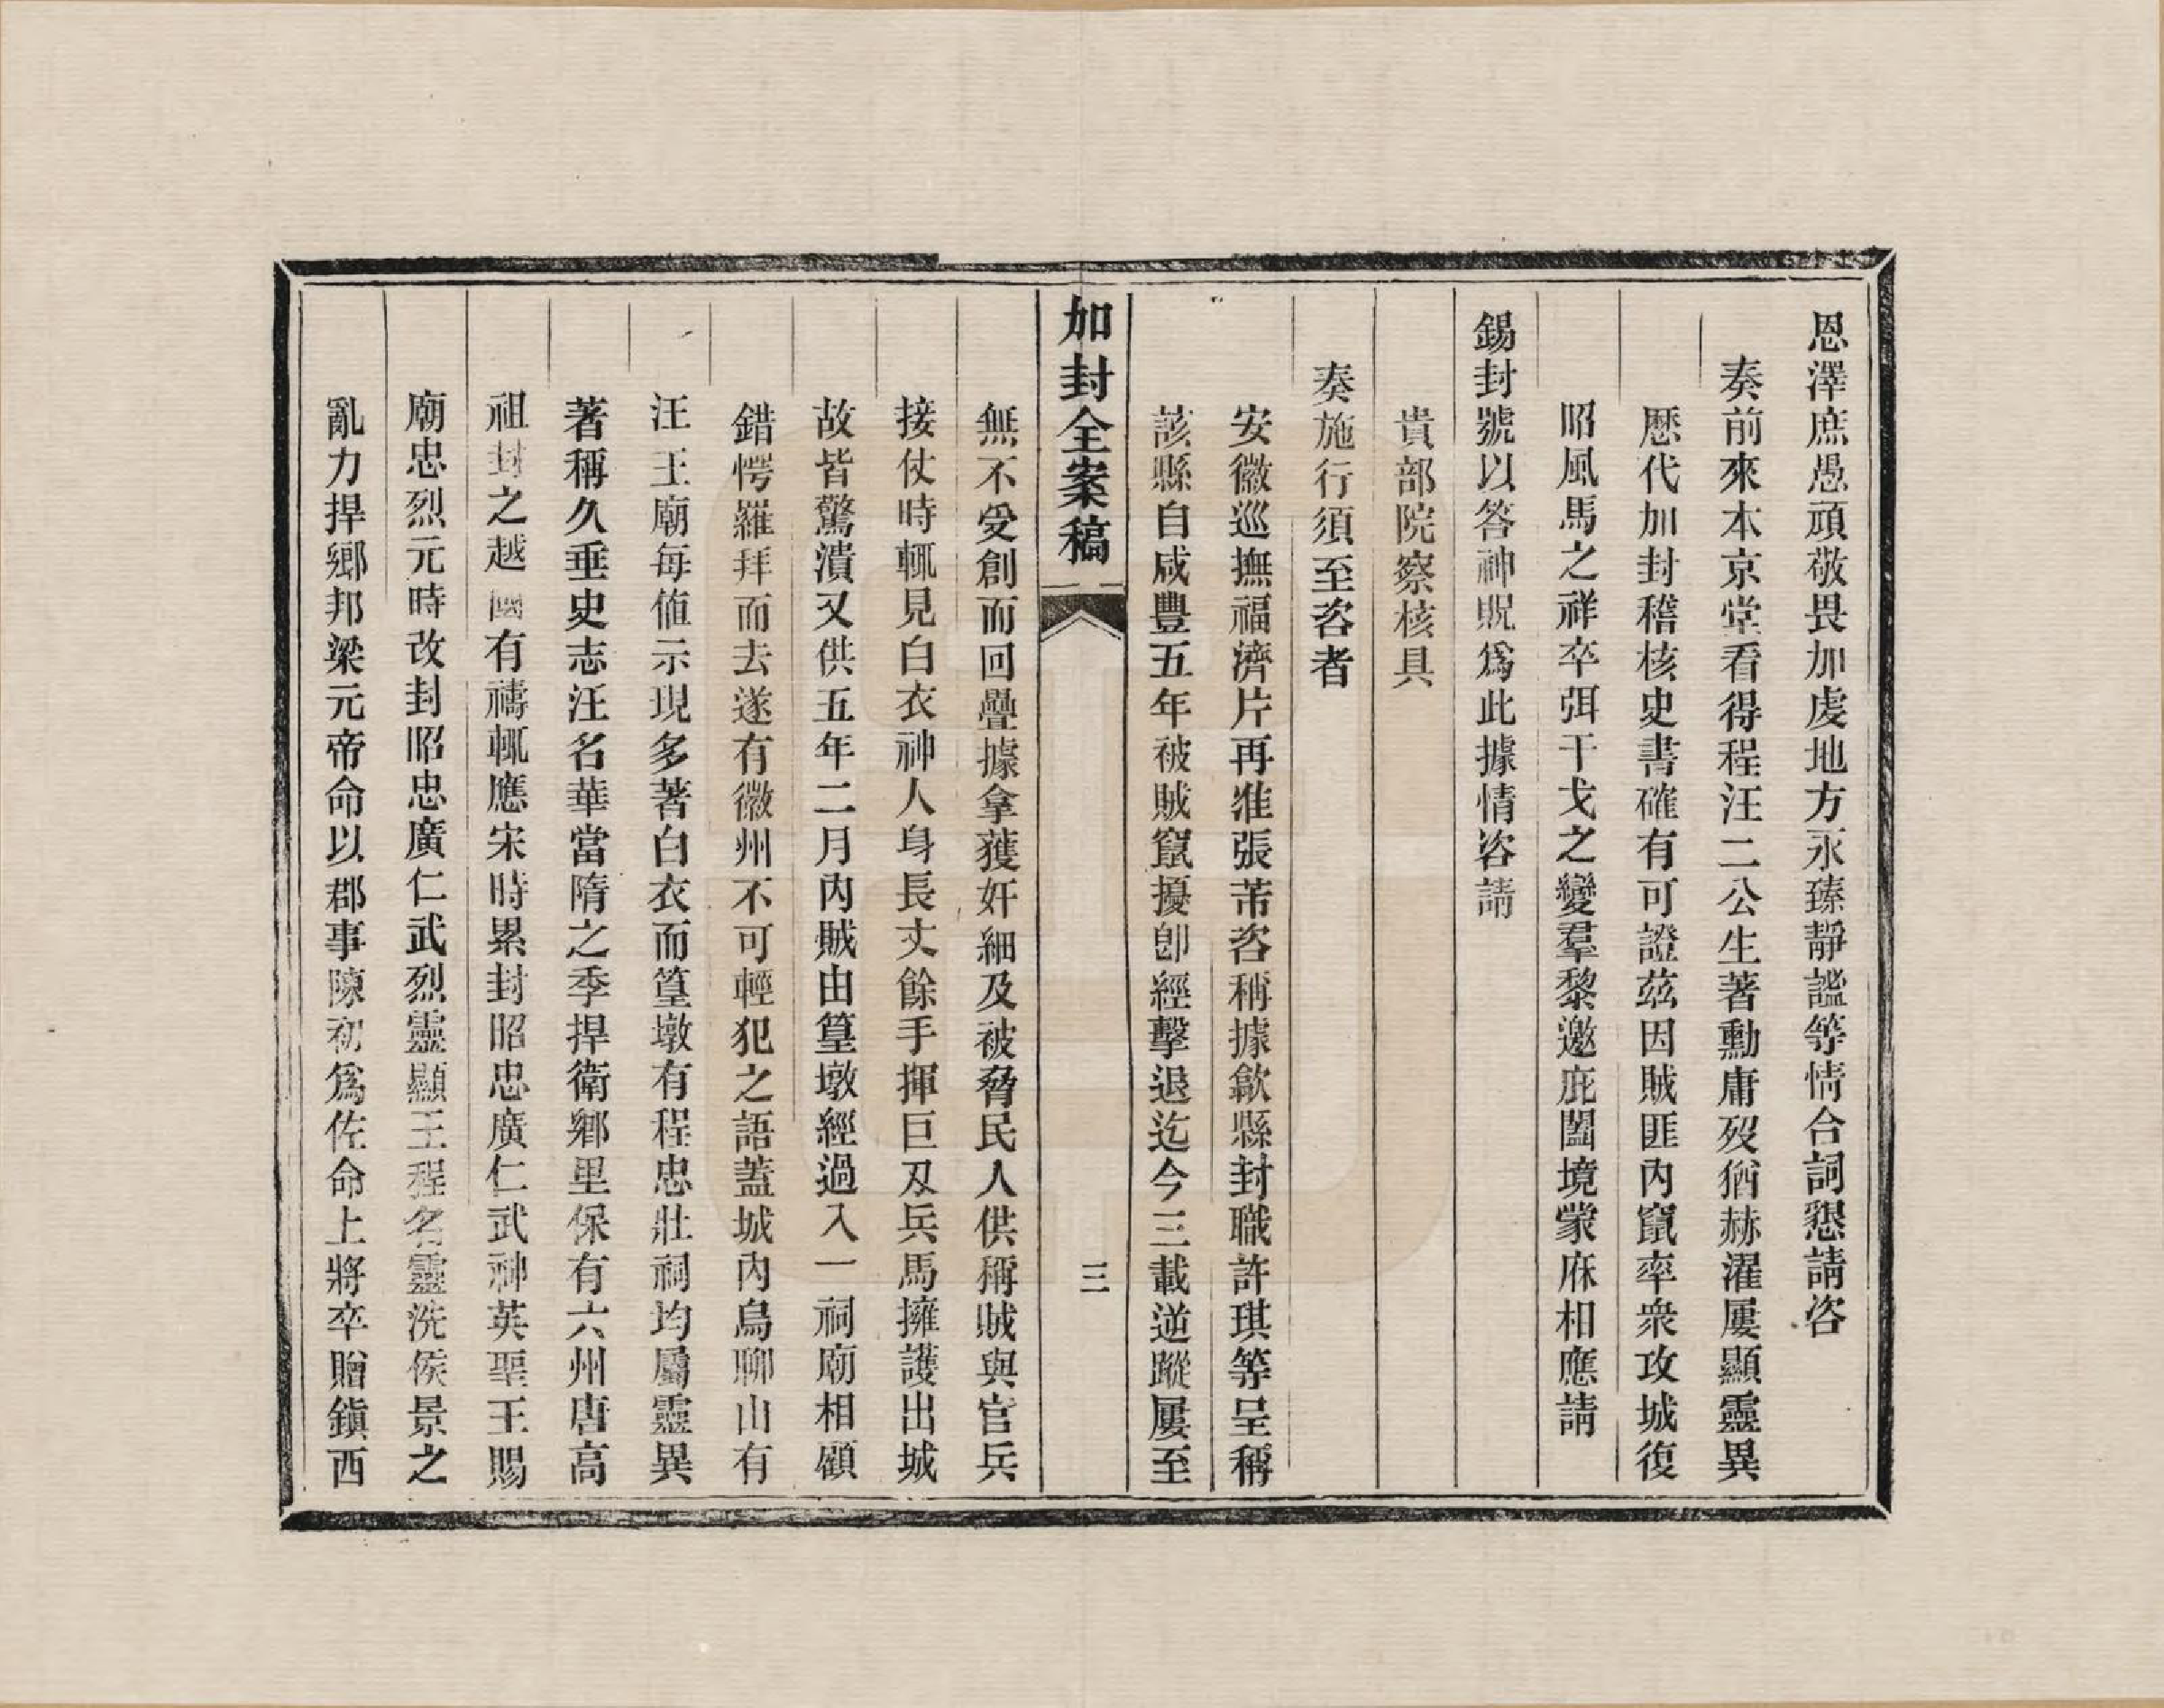 恩澤庶愚頑敬畏加虔地方永臻靜謐等情合詞懇請咨
奏前來本京堂看得程汪二公生著勳庸歿猶赫濯屢顯靈異
歷代加封稽核史書確有可證茲因賊匪內竄率衆攻城復
昭風馬之祥卒弭干戈之變羣黎邀庇闔境蒙庥相應請
錫封號以答神貺爲此據情咨請
貴部院察核具
奏施行須至咨者
安徽巡撫福濟片再准張芾咨稱據歙縣封職許琪等呈稱
該縣自咸豐五年被賊竄擾卽經擊退迄今三載逆蹤屢至
加封全案稿
三
無不受創而回疊據拿獲奸細及被脅民人供稱賊與官兵
接仗時輒見白衣神人身長丈餘手揮巨刄兵馬擁護出城
故皆驚潰又供五年二月內賊由篁墩經過入一祠廟相顧
錯愕羅拜而去遂有徽州不可輕犯之語蓋城內烏聊山有
汪王廟每値示現多著白衣而篁墩有程忠壯祠均屬靈異
著稱久垂史志汪名華當隋之季捍衛鄉里保有六州唐高
祖封之越國有禱輒應宋時累封昭忠廣仁武神英聖王賜
廟忠烈元時改封昭忠廣仁武烈靈顯王程名靈洗侯景之
亂力捍鄉邦梁元帝命以郡事陳初爲佐命上將卒贈鎭西